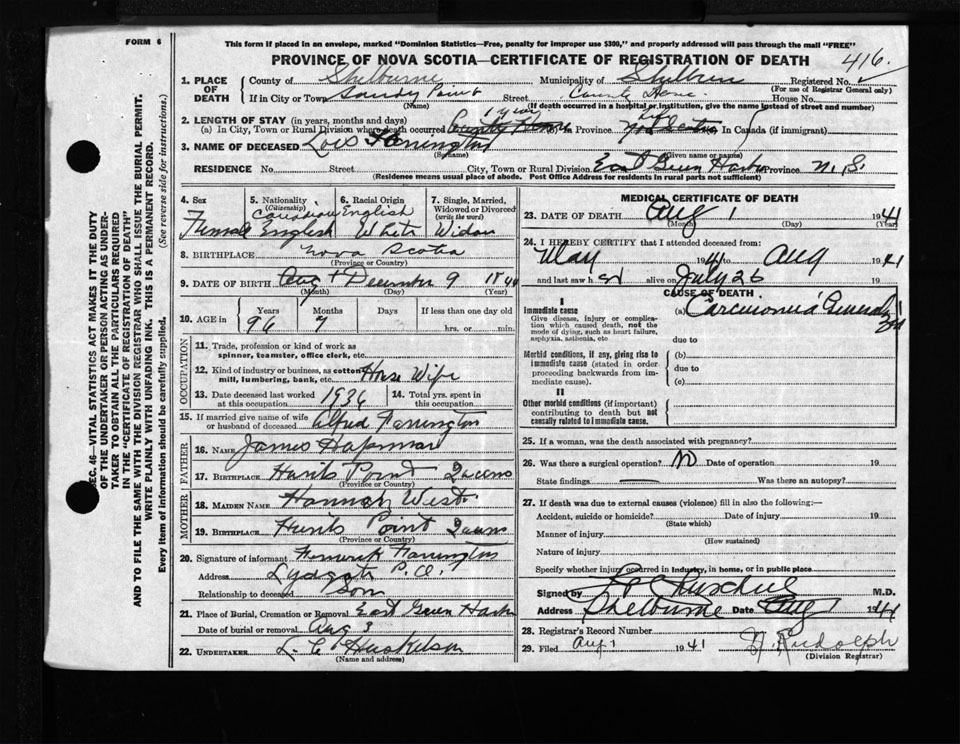 FORM 6
This form if placed in an envelope, marked "Dominion Statistics—Free, penalty for improper use $300," and properly addressed will pass through the mail "FREE"
PROVINCE OF NOVA SCOTIA—CERTIFICATE OF REGISTRATION OF DEATH 416.
1. PLACE OF DEATH County of Shelburne Municipality of Registered No.
(For use of Registrar General only)
If in City or Town Sandy Point Street County Home House No.
(If death occurred in a hospital or institution, give the name instead of street and number)
2. LENGTH OF STAY (in years, months and days) 1 year
(a) In City, Town or Rural Division where death occurred County Home In Province life Nova Scotia In Canada (if immigrant)
3. NAME OF DECEASED Lois Farrington
(Surname) (Given name or names)
RESIDENCE No. Street City, Town or Rural Division East Green Harbor Province N.S.
(Residence means usual place of abode. Post Office Address for residents in rural parts not sufficient)
4. Sex Female
5. Nationality (Citizenship) Canadian English
6. Racial Origin English White
7. Single, Married, Widowed or Divorced (write the word) Widow
8. BIRTHPLACE Nova Scotia
(Province or Country)
9. DATE OF BIRTH Aug December 9 1844
(Month) (Day) (Year)
10. AGE in Years 96 Months 7 Days If less than one day old hrs. or min.
OCCUPATION
11. Trade, profession or kind of work as spinner, teamster, office clerk, etc.
12. Kind of industry or business, as cotton mill, lumbering, bank, etc. House Wife
13. Date deceased last worked at this occupation 1936
14. Total yrs. spent in this occupation
15. If married give name of wife or husband of deceased Alfred Farrington
FATHER
16. NAME James
17. BIRTHPLACE Hunts Point Queens
(Province or Country)
MOTHER
18. MAIDEN NAME Hannah West
19. BIRTHPLACE Hunts Point Queens
(Province or Country)
20. Signature of informant Farrington
Address Lydgate P.O.
Relationship to deceased Son
21. Place of Burial, Cremation or Removal East Green Harbor
Date of burial or removal Aug 3
22. UNDERTAKER L. C. Huskilson
(Name and address)
MEDICAL CERTIFICATE OF DEATH
23. DATE OF DEATH Aug 1 1941
(Month) (Day) (Year)
24. I HEREBY CERTIFY that I attended deceased from:
May 1941 to Aug 1941
and last saw h alive on July 26
CAUSE OF DEATH
I
Immediate cause
Give disease, injury or complication which caused death, not the mode of dying, such as heart failure, asphyxia, asthenia, etc
(a) Carcinoma
due to
Morbid conditions, if any, giving rise to immediate cause (stated in order proceeding backwards from immediate cause).
(b)
due to
(c)
II
Other morbid conditions (if important) contributing to death but not causally related to immediate cause.
25. If a woman, was the death associated with pregnancy?
26. Was there a surgical operation? No Date of operation 19
State findings Was there an autopsy?
27. If death was due to external causes (violence) fill in also the following:—
Accident, suicide or homicide? Date of injury 19
(State which)
Manner of injury
(How sustained)
Nature of injury
Specify whether injury occurred in industry, in home, or in public place
Signed by M.D.
Address Shelburne Date Aug 1 1941
28. Registrar's Record Number
29. Filed Aug 1 1941 N. Rudolph
(Division Registrar)
SEC. 46—VITAL STATISTICS ACT MAKES IT THE DUTY
OF THE UNDERTAKER OR PERSON ACTING AS UNDER-
TAKER TO OBTAIN ALL THE PARTICULARS REQUIRED
IN THE "CERTIFICATE OF REGISTRATION OF DEATH"
AND TO FILE THE SAME WITH THE DIVISION REGISTRAR WHO SHALL ISSUE THE BURIAL PERMIT.
WRITE PLAINLY WITH UNFADING INK. THIS IS A PERMANENT RECORD.
Every item of information should be carefully supplied. (See reverse side for instructions.)